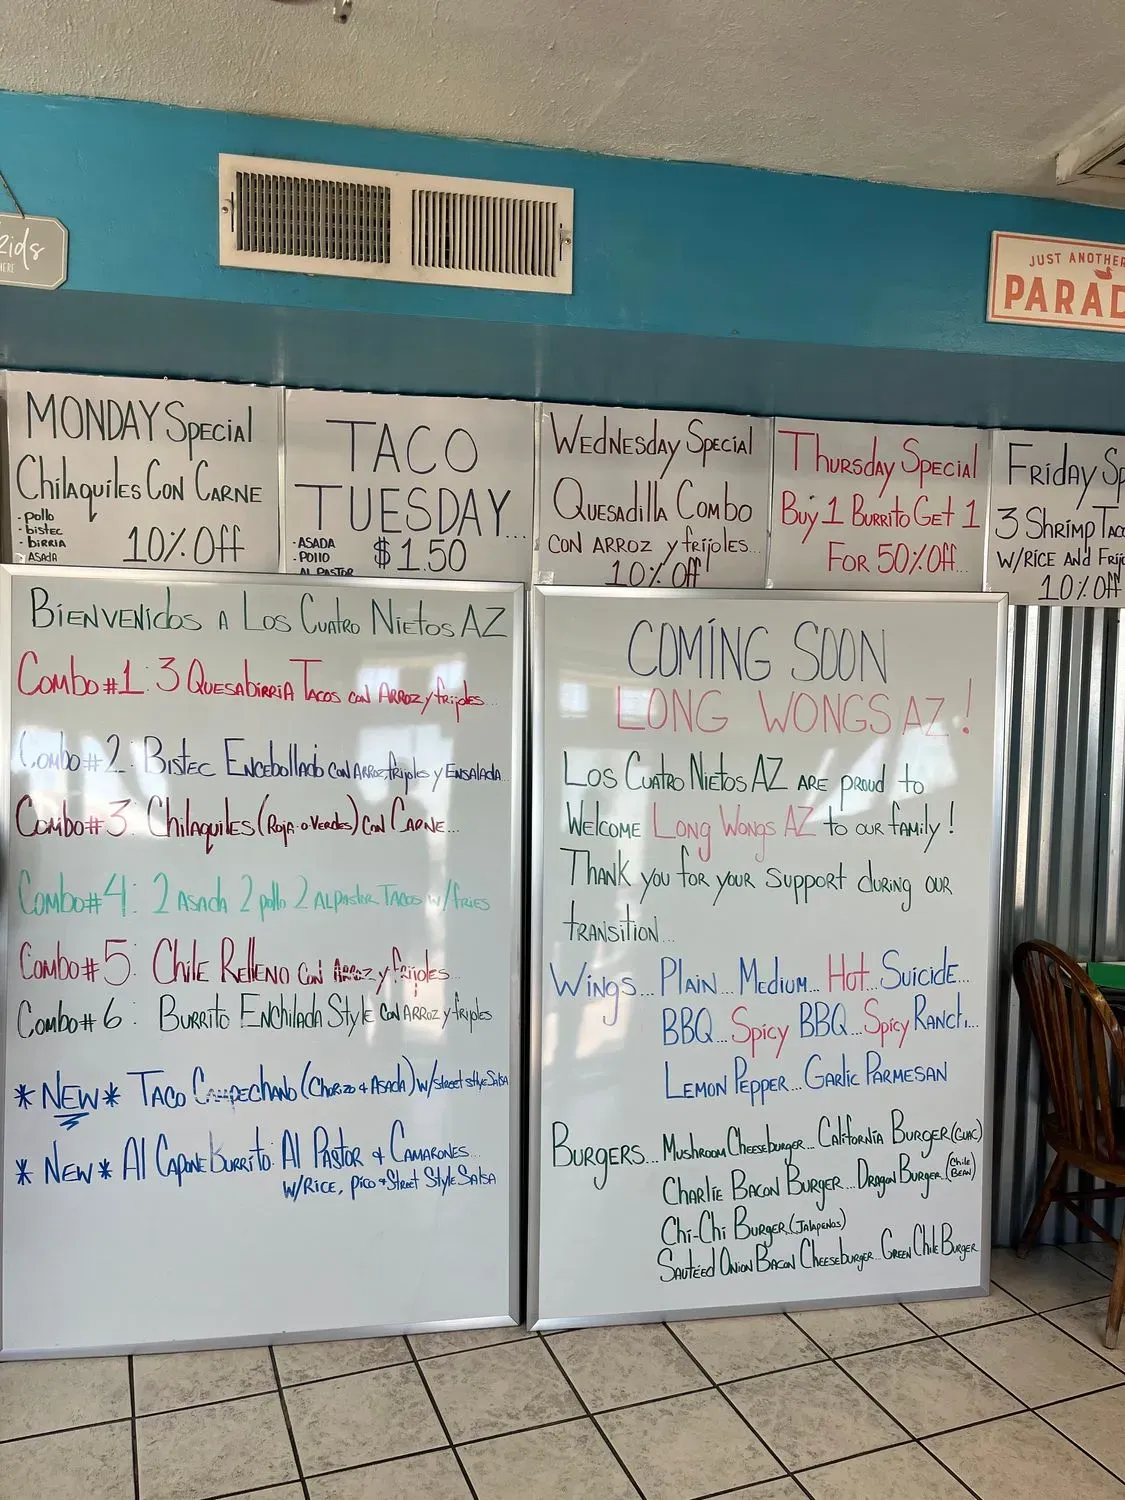 Kids
HERE
JUST ANOTHER
PARAD
MONDAY Special
Chilaquiles Con Carne
- pollo
- bistec
- birria
- Asada
10% Off
TACO
TUESDAY...
- ASADA
- Pollo
Al Pastor
$1.50
Wednesday Special
Quesadilla Combo
con arroz y frijoles...
10% Off
Thursday Special
Buy 1 Burrito Get 1
For 50% Off...
Friday Sp
3 Shrimp Taco
w/Rice and Frijo
10% Off
Bienvenidos a Los Cuatro Nietos AZ
Combo #1: 3 Quesabirria Tacos con Arroz y frijoles...
Combo #2: Bistec Encebollado con Arroz frijoles y Ensalada...
Combo #3: Chilaquiles (Roja o Verdes) con Carne...
Combo #4: 2 Asada 2 pollo 2 Al pastor Tacos w/fries
Combo #5: Chile Relleno con Arroz y frijoles...
Combo #6: Burrito Enchilada Style con Arroz y frijoles
* NEW * Taco Campechano (Chorizo & Asada) w/street style Salsa
* New * Al Capone Burrito: Al Pastor & Camarones...
w/Rice, pico & Street Style Salsa
COMING SOON
LONG WONGS AZ!
Los Cuatro Nietos AZ are proud to
Welcome Long Wongs AZ to our family!
Thank you for your support during our
transition...
Wings... Plain... Medium... Hot... Suicide...
BBQ... Spicy BBQ... Spicy Ranch...
Lemon Pepper... Garlic Parmesan
Burgers... Mushroom Cheeseburger... California Burger (Guac)
Charlie Bacon Burger... Dragon Burger (Chile Bean)
Chi-Chi Burger (Jalapenos)
Sauteed Onion Bacon Cheeseburger... Green Chile Burger